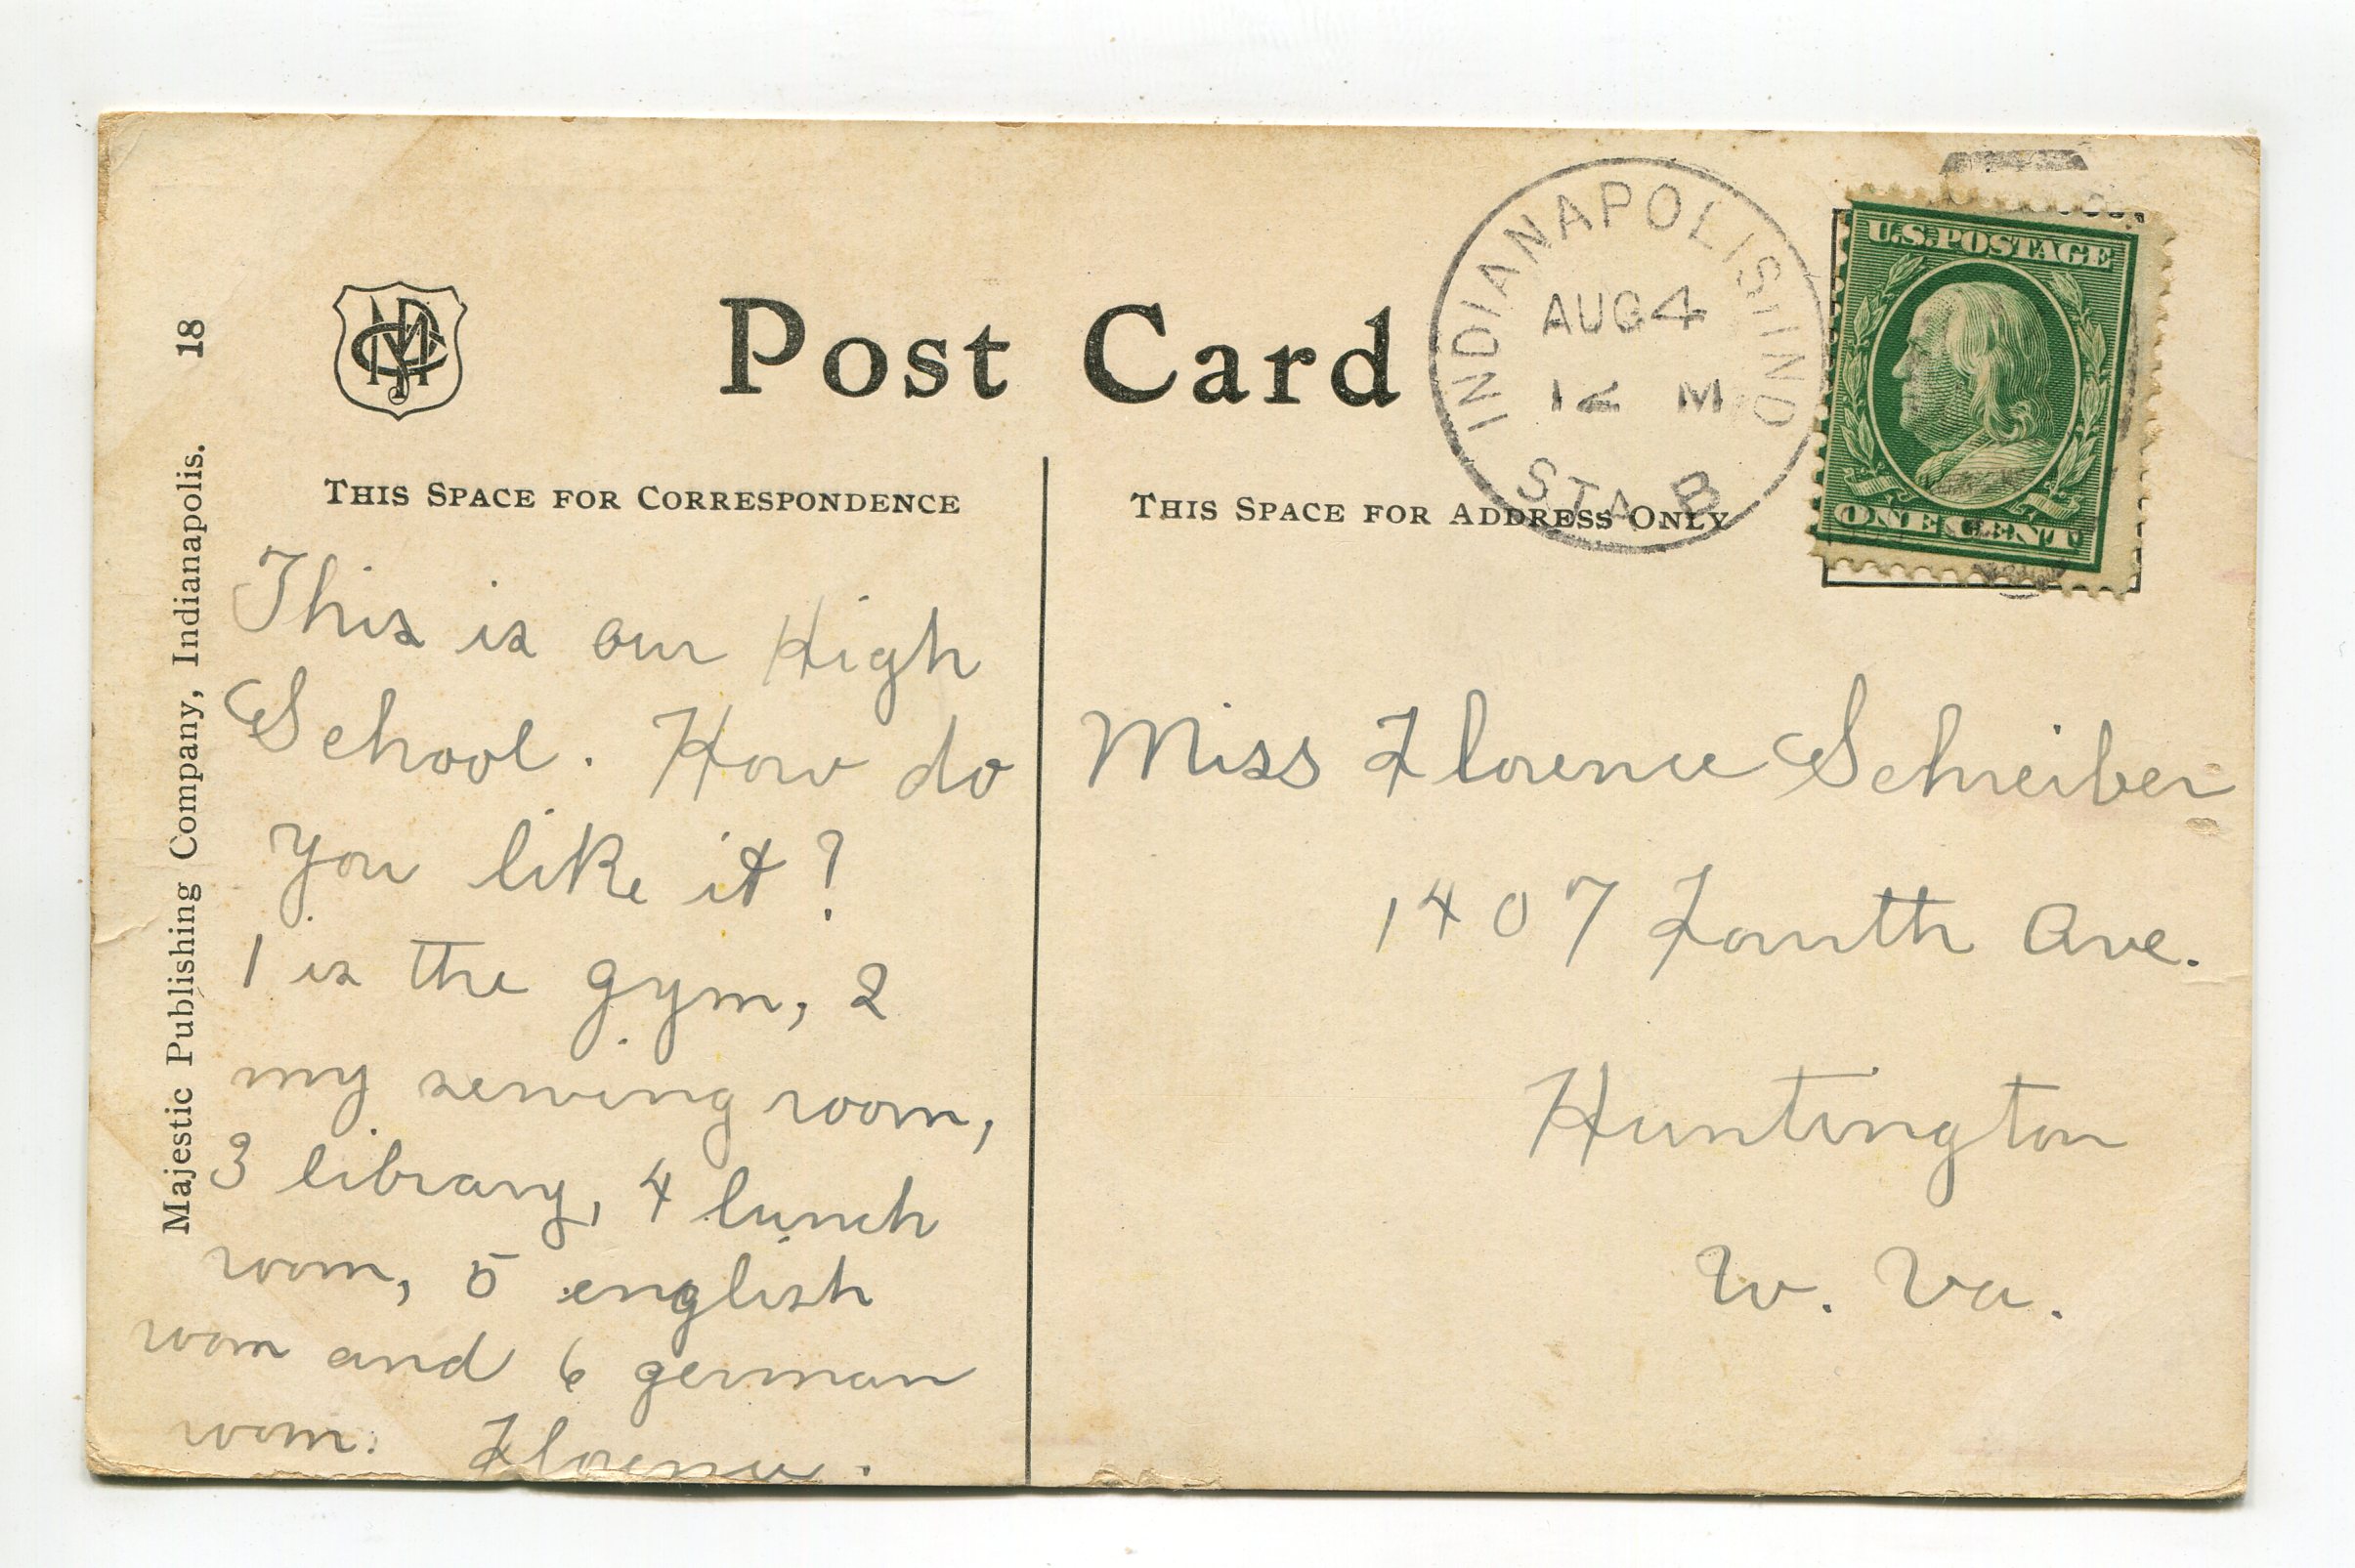 Post Card
INDIANAPOLIS, IND
AUG 4
12 M
STA. B
U.S. POSTAGE
ONE CENT
THIS SPACE FOR CORRESPONDENCE
THIS SPACE FOR ADDRESS ONLY
Majestic Publishing Company, Indianapolis. 18
This is our High
School. How do
you like it?
1 is the gym, 2
my sewing room,
3 library, 4 lunch
room, 5 english
room and 6 german
room. Florence.
Miss Florence Schreiber
1407 Fourth Ave.
Huntington
W. Va.